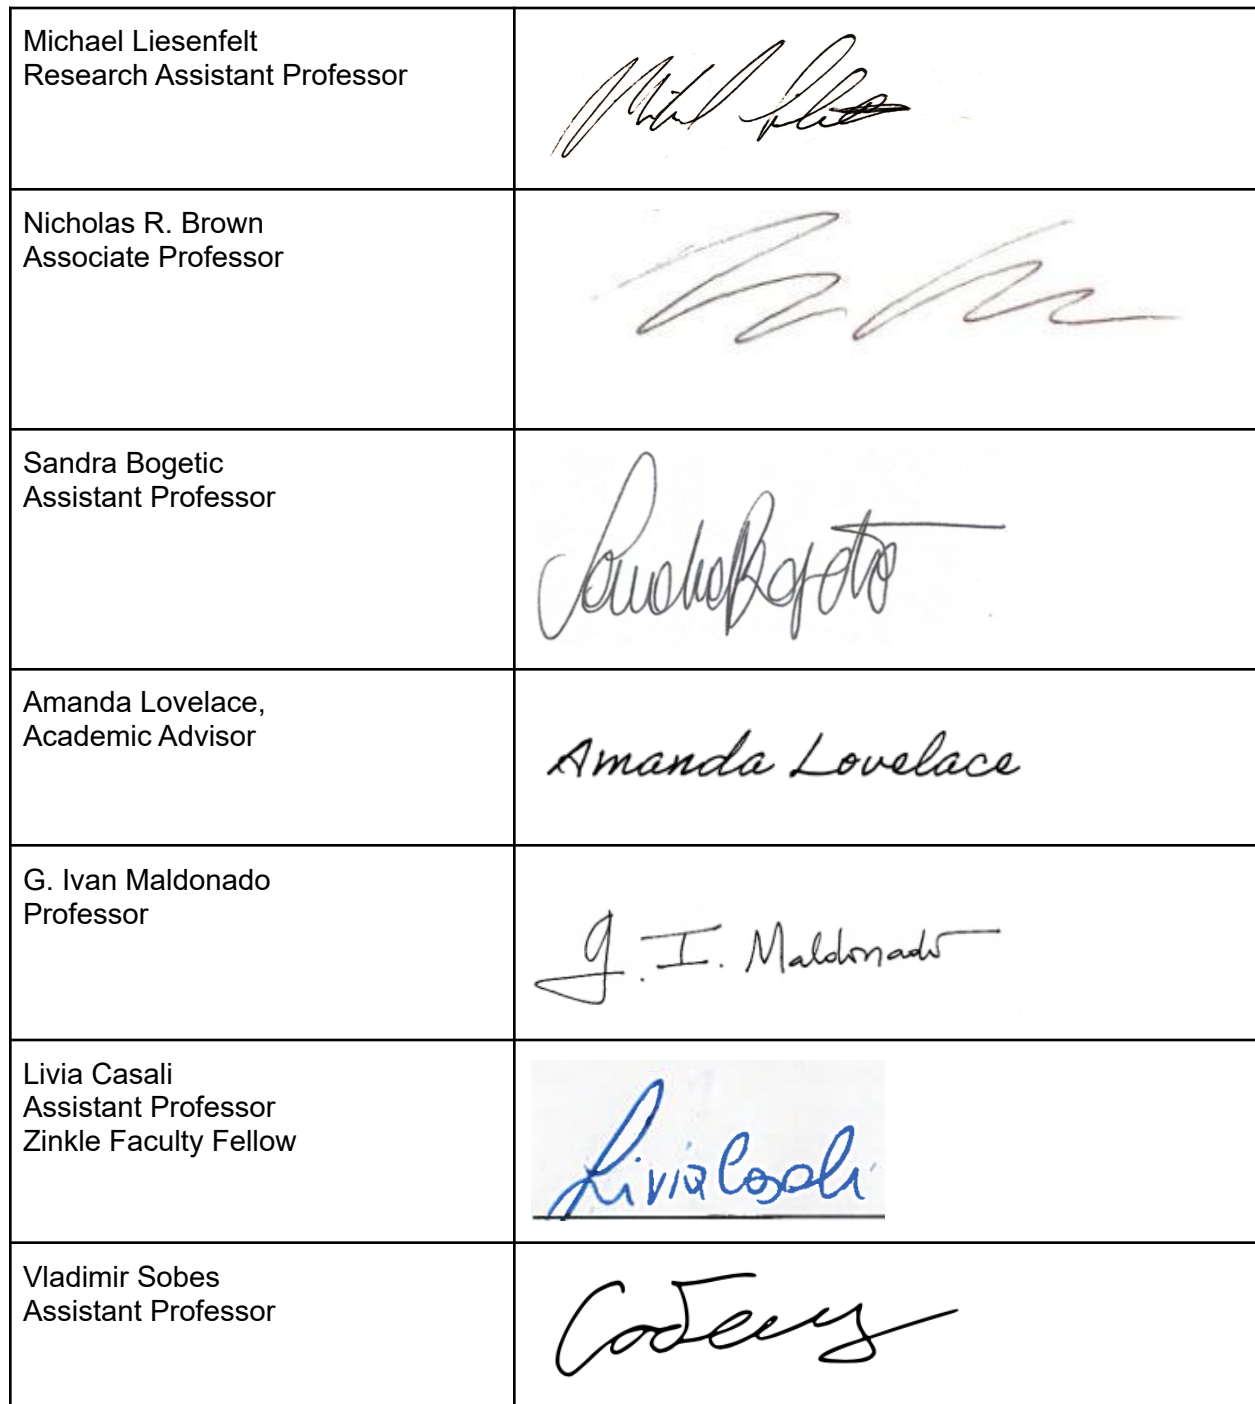 Michael Liesenfelt
Research Assistant Professor
Nicholas R. Brown
Associate Professor
Sandra Bogetic
Assistant Professor
Amanda Lovelace,
Academic Advisor
Amanda Lovelace
G. Ivan Maldonado
Professor
G. I. Maldonado
Livia Casali
Assistant Professor
Zinkle Faculty Fellow
Livia Casali
Vladimir Sobes
Assistant Professor